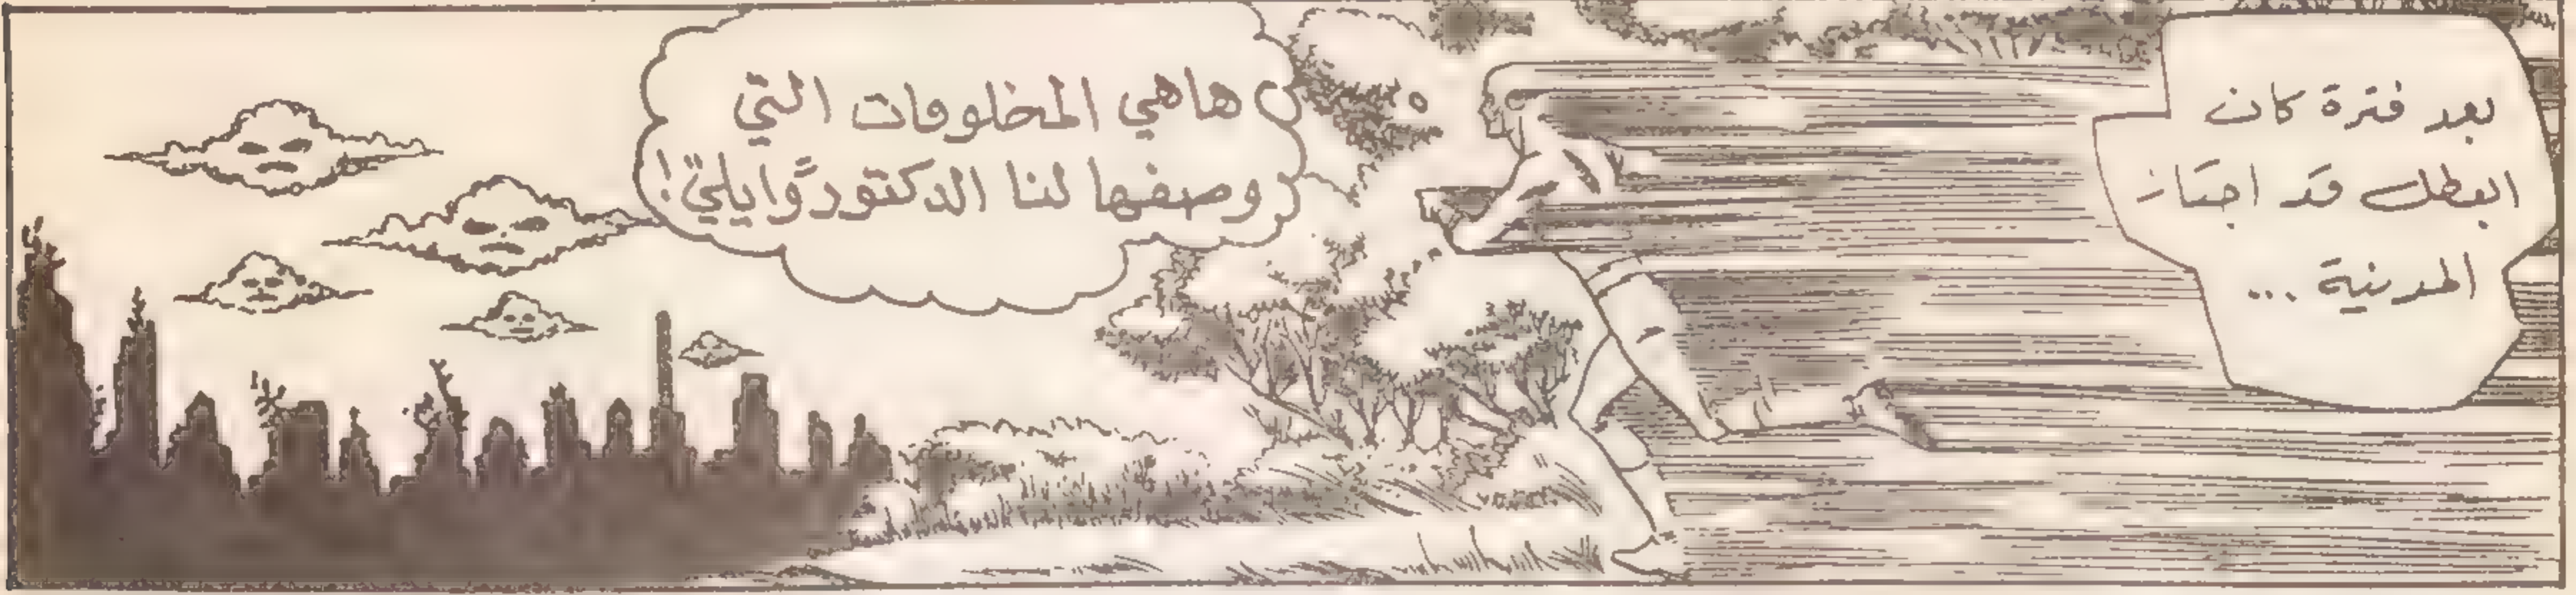 بعد فترة كان
البطل قد اجتاز
المدينة ...
هاهي المخلوقات التي
وصفها لنا الدكتور "وايلي"!